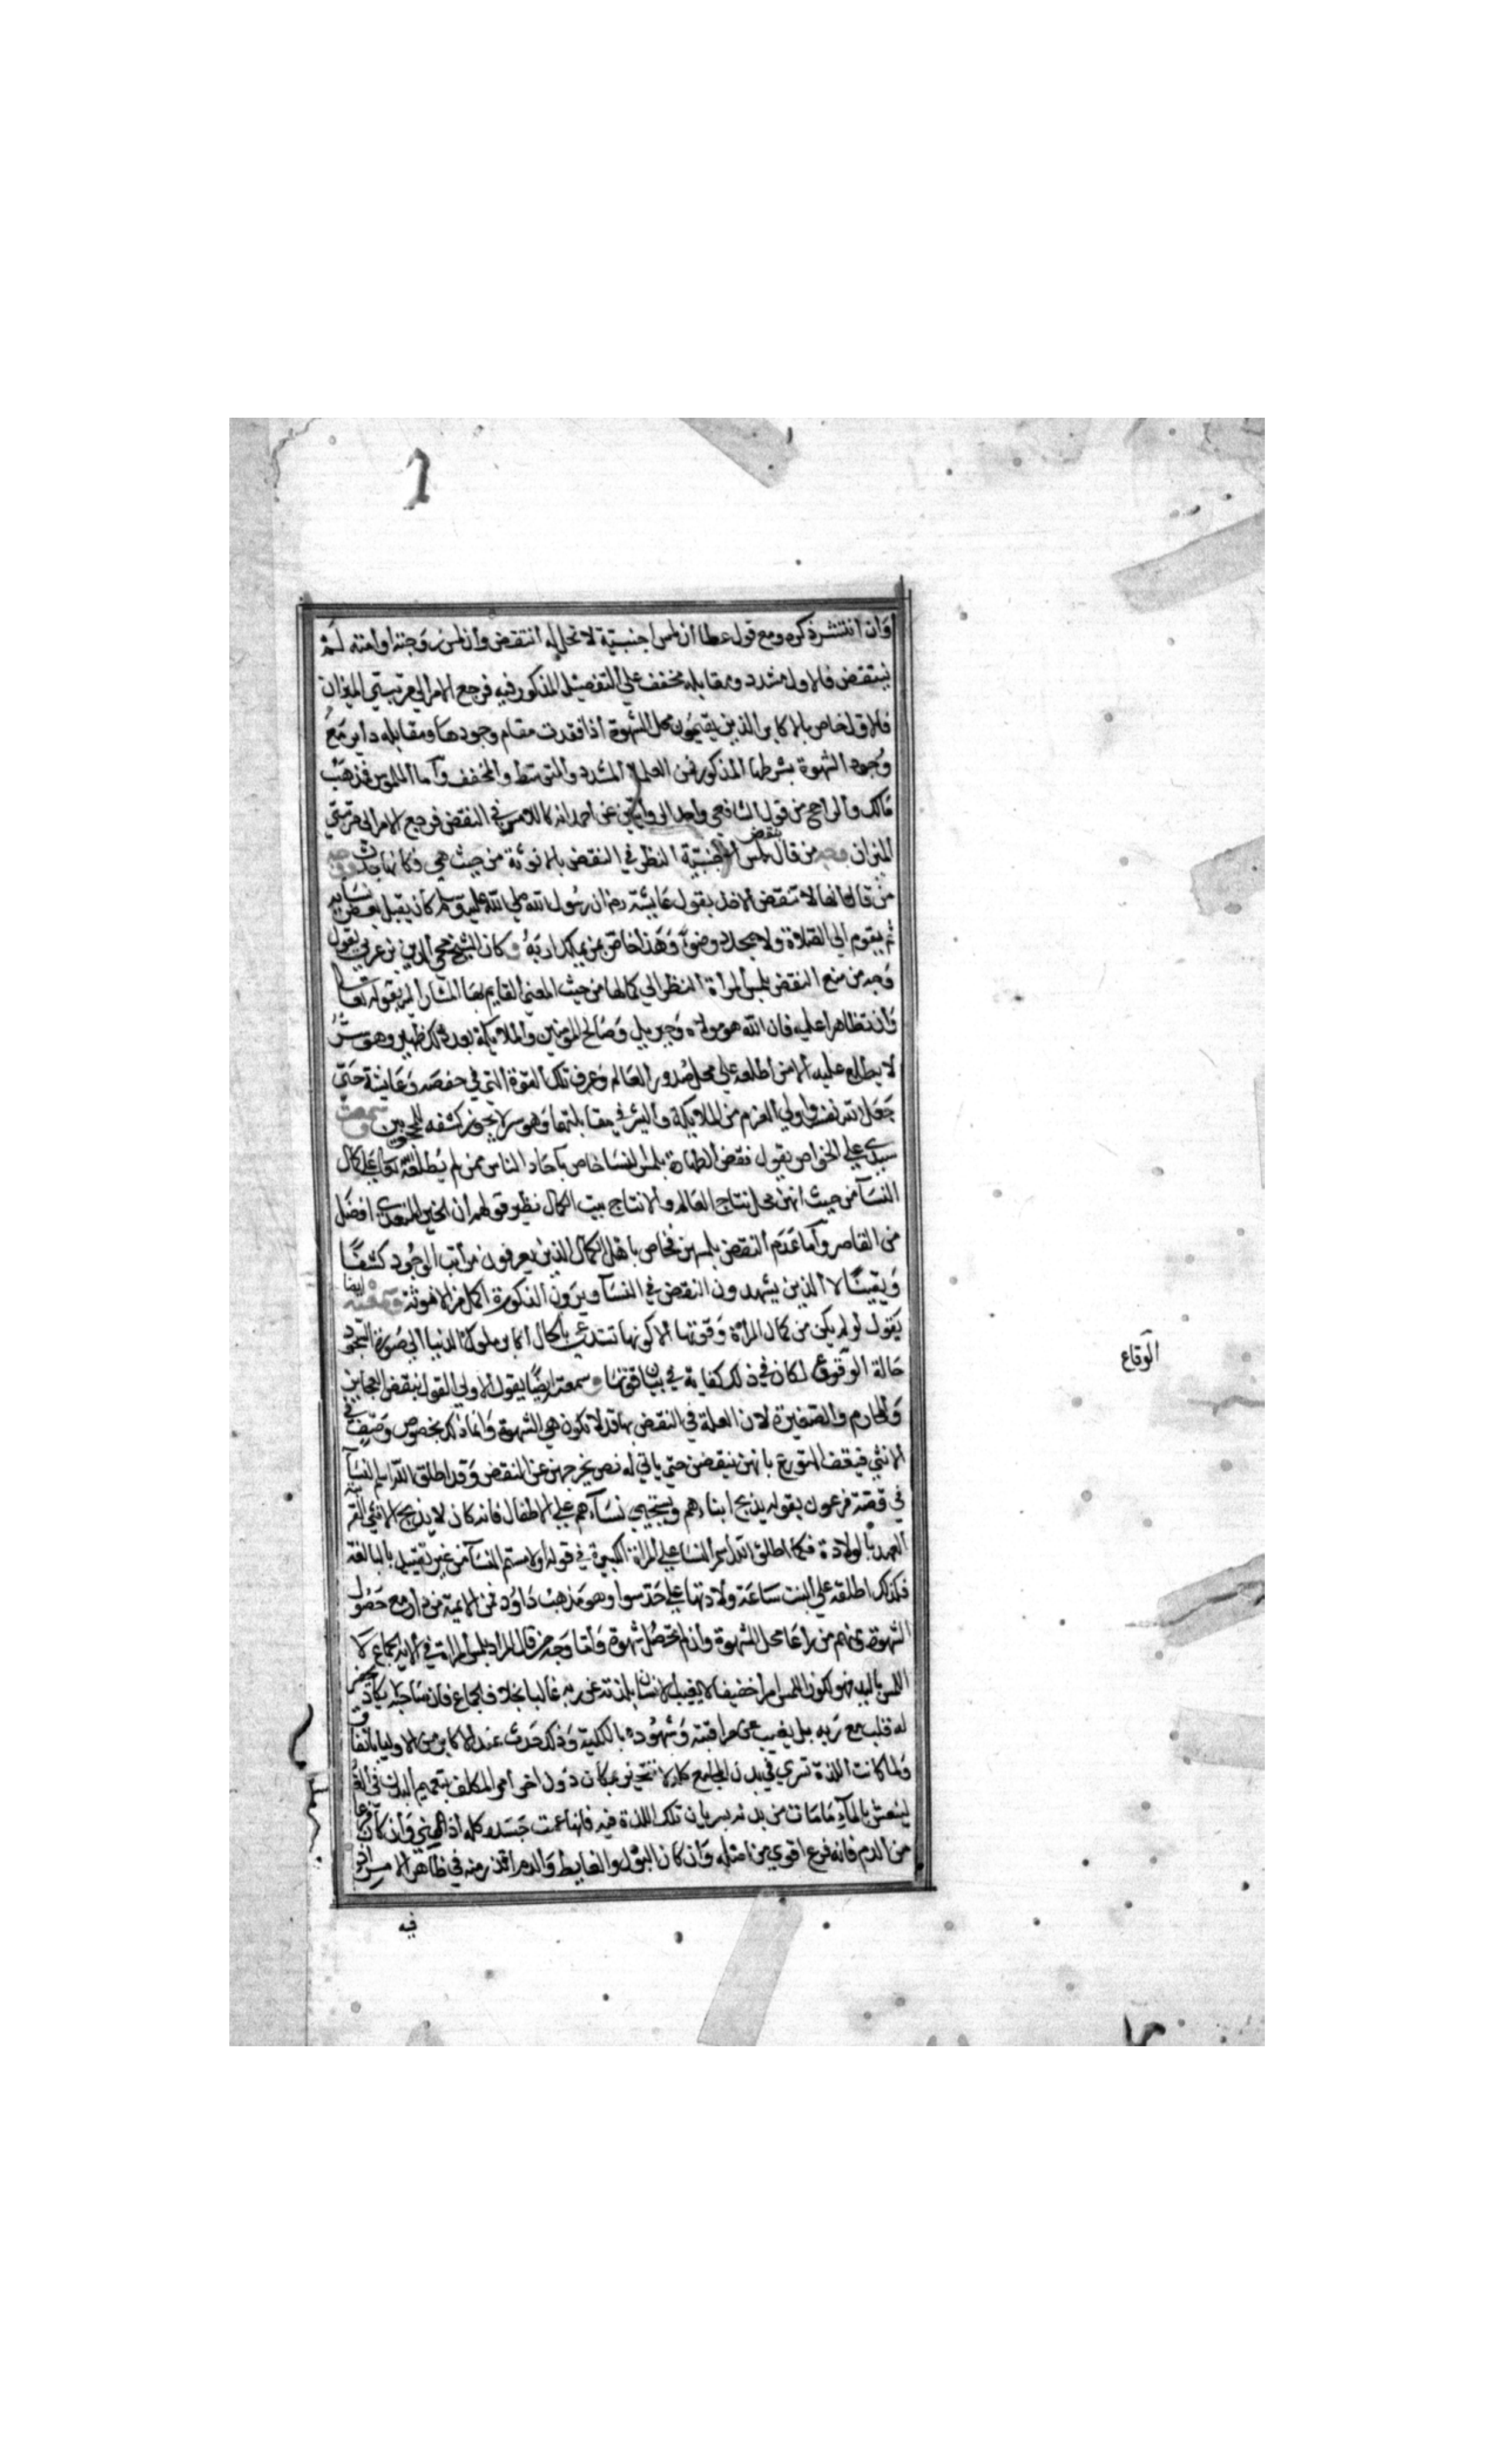 وان انتشر ذكره ومع قول عطا ان لمس اجنبية لا تحل له انتقض وان لمس زوجته او امته لم
ينتقض فالاول مشدد ومقابله مخفف علي التفصيل المذكور فيه فرجع الامر الي مرتبتي الميزان
فالاول خاص بالاكابر الذين يقيمون محل الشهوة اذا فقدت مقام وجودها ومقابله داير مع
وجود الشهوة بشرطها المذكور فمن العلماء المشدد والمتوسط والمخفف واما الملموس فذهب
مالك والراجح من قول الشافعي واحد الروايتين عن احمد انه كاللامس في النقض فرجع الامر الي مرتبتي
الميزان ووجه من قال بنقض لمس الاجنبية النظر في النقض بالانوثة من حيث هي فكانها حدث ووجه
من قال انها لا تنقض الاخذ بقول عايشة رضي ان رسول الله صلي الله عليه وسلم كان يقبل بعض نسايه
ثم يقوم الي الصلاة ولا يجدد وضوء وهذا خاص بمن يملك اربه وكان الشيخ محي الدين بن عربي يقول
وجه من منع النقض بلمس المراة النظر الي كمالها من حيث المعني القايم بها المشار اليه بقوله تعالي
وان تظاهرا عليه فان الله هو مولاه وجبريل وصالح المومنين والملايكة بعد ذلك ظهير وهو سر
لا يطلع عليه الا من اطلعه علي محل صدور العالم وعرف تلك القوة التي في حفصه وعايشة حتي
جعل الله نفسه واولي العزم من الملايكة والبشر في مقابلتهما وهو سر لا يجوز كشفه للمحجوبين وسمعت
سيدي علي الخواص يقول نقض الطهارة بلمس النسا خاص بآحاد الناس ممن لم يطلعه الله تعالي علي كمال
النسآ من حيث انهن محل نتاج العالم والانتاج بيت الكمال نظير قولهم ان الخير المتعدي افضل
من القاصر واما عدم النقض بلمسهن فخاص باهل الكمال الذين يعرفون مراتب الوجود كشفا
ويقينا لا الذين يشهدون النقص في النسآ ويرون الذكورة اكمل من الانوثة وسمعته ايضا
يقول لو لم يكن من كمال المراة وقوتها الا كونها تستدعي بالحال اكابر ملوك الدنيا الي صورة السجود
حالة الوقوع لكان في ذلك كفاية في بيان قوتها وسمعته ايضا يقول الاولي القول بنقض العجايز
والمحارم والصغيرة لان العلة في النقض بها قد لا تكون هي الشهوة وانما ذلك بخصوص وصف في
الانثي فيقف المتورع بانهن ينقضن حتي ياتي له نص يخرجهن عن النقض وقد اطلق الله اسم النسآ
في قصة فرعون بقوله يذبح ابناءهم ويستحيي نسآءهم علي الاطفال فانه كان لا يذبح الانثي القريبة
العهد بالولادة فكما اطلق الله اسم النسا علي المراة الكبيرة في قوله او لامستم النسآ من غير تقييد بالبالغة
فكذلك اطلقه علي البنت ساعة ولادتها علي حد سوا وهو مذهب داوود فمن الايمة من دار مع حصول
الشهوة ومنهم من راعا محل الشهوة وان لم تحصل شهوة واما وجه من قال المراد بلمس المراة في الاية الجماع لا
اللمس باليد فهو لكون اللمس امرا خفيفا لا يغيب الانسان بلذته عن ربه غالبا بخلاف الجماع فان صاحبه لا يكاد يحضر
له قلب مع ربه بل يغيب عن مراقبته وشهوده بالكلية وذلك حدث عند الاكابر من الاوليا باتفاق
ولما كانت اللذة تسري في بدن المجامع كله لا تتحيز بمكان دون اخر امر المكلف بتعميم البدن في الغسل
لينعش بالمآء ما مات من بدنه بسريان تلك اللذة فيه فانها عمت جسده كله اذ المني وان كان فرعا
من الدم فانه فرع اقوي من اصله وان كان البول والغايط والدم اقذر منه في ظاهر الامر اذ
فيه
الوقاع